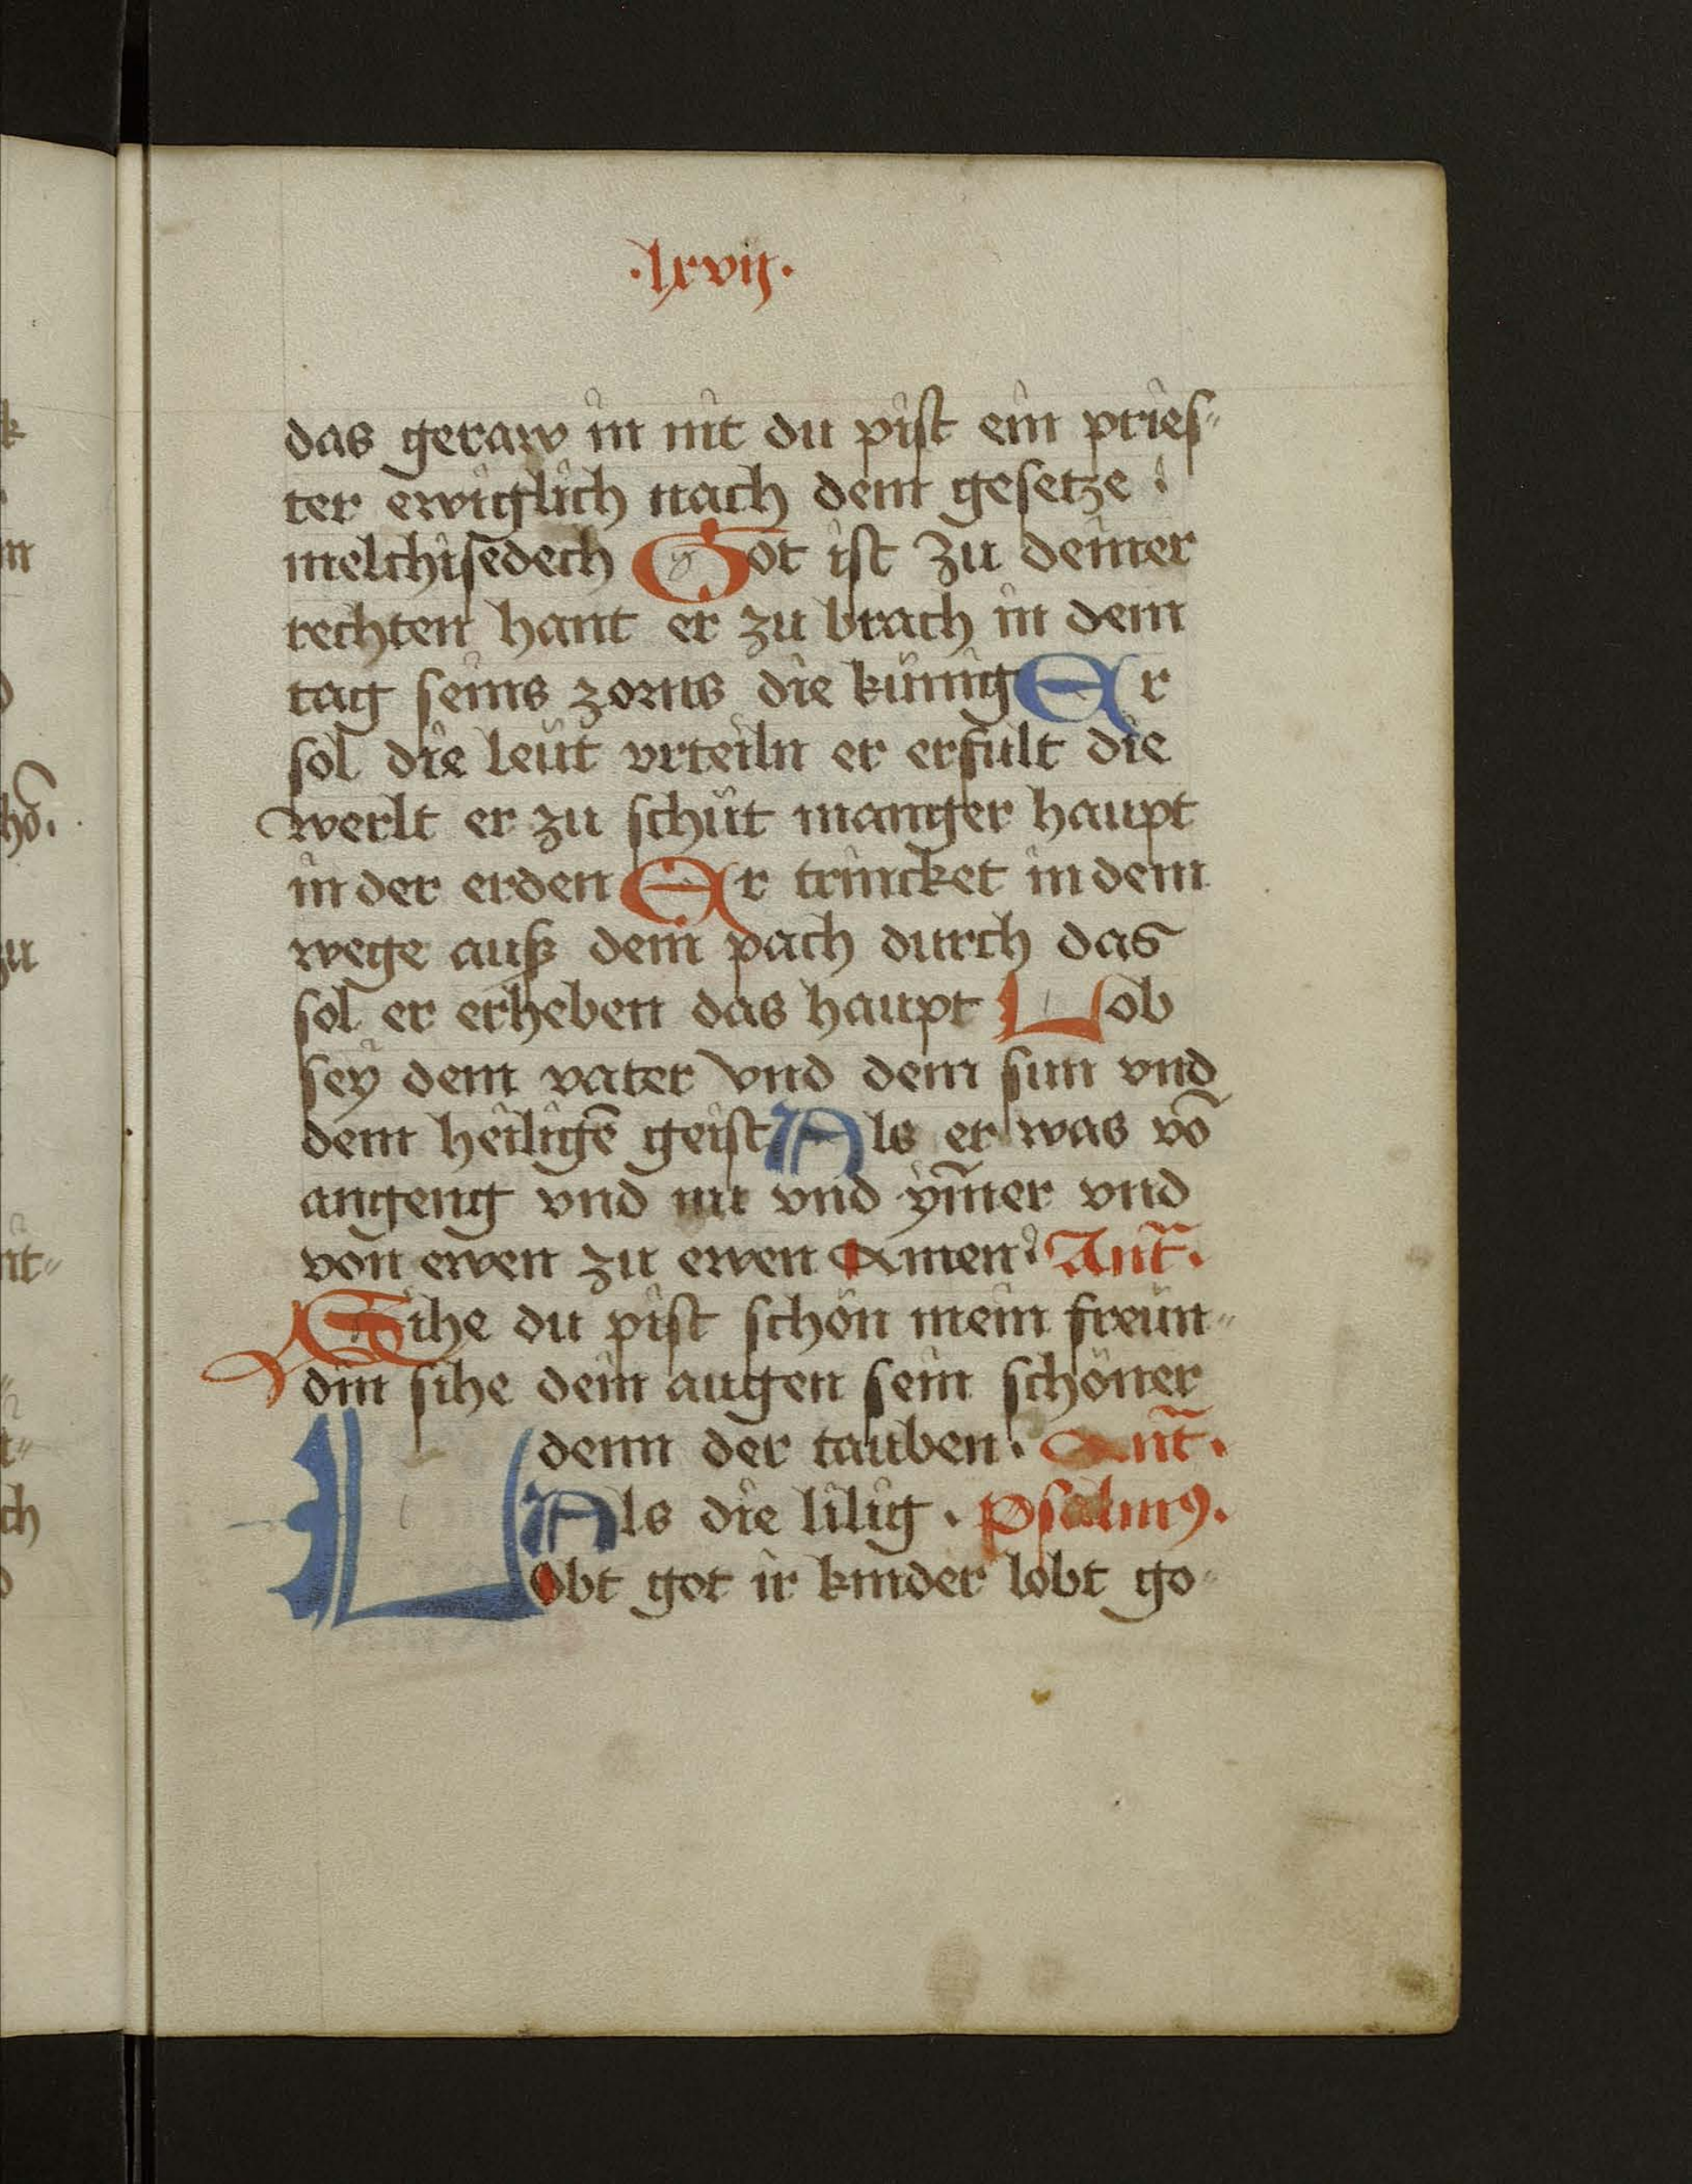 ·lxvij·
das geraw in nit du pist ein pries⸗
ter ewiglich nach dem gesetze ·
melchisedech Got ist zu deiner
rechten hant er zu brach in dem
tag seins zorns die künig Er
sol die leüt vrteiln er erfult die
werlt er zu schüt manger haupt
in der erden Er trincket in dem
wege auß dem pach durch das
sol er erheben das haupt Lob
sey dem vater vnd dem sun vnd
dem heiligē geist Als er was vō
angeng vnd nu vnd ym̄er vnd
von ewen zu ewen Amen · Ant̄·
Sihe du pist schön mein freün⸗
din sihe dein augen sein schöner
denn der tauben · Ant̄·
Als die lilig · psalmꝰ·
Lobt got ir kinder lobt go⸗